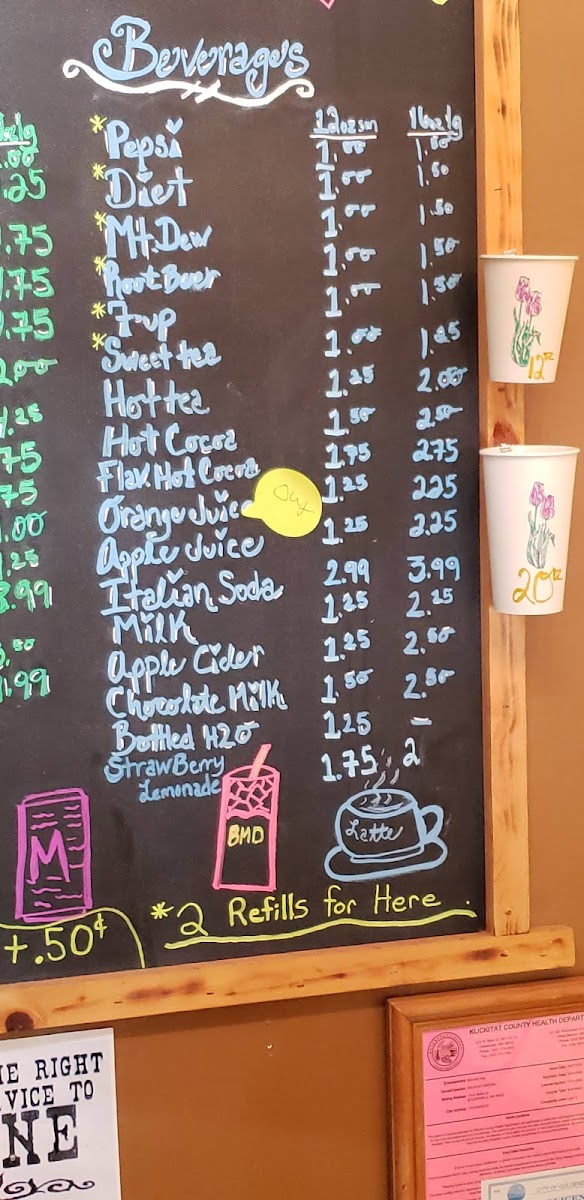 Beverages
12oz sm 16oz lg
*Pepsi 1.00 1.50
*Diet 1.00 1.50
*Mt. Dew 1.00 1.50
*Root Beer 1.00 1.50
*7-up 1.00 1.50
*Sweet tea 1.00 1.25
Hot tea 1.25 2.00
Hot Cocoa 1.50 2.50
Flav. Hot Cocoa 1.75 275
Orange Juice Out 1.25 225
Apple Juice 1.25 2.25
Italian Soda 2.99 3.99
Milk 1.25 2.25
Apple Cider 1.25 2.50
Chocolate Milk 1.50 2.50
Bottled H2O 1.25 -
StrawBerry 1.75 2
Lemonade
.25
.75
.75
.75
2.00
.25
75
75
.00
.25
.99
.50
.99
12oz
20oz
M
BMD
Latte
*2 Refills for Here.
+.50¢
HE RIGHT
VICE TO
NE
KLICKITAT COUNTY HEALTH DEPART
CITY OF GOLDEN